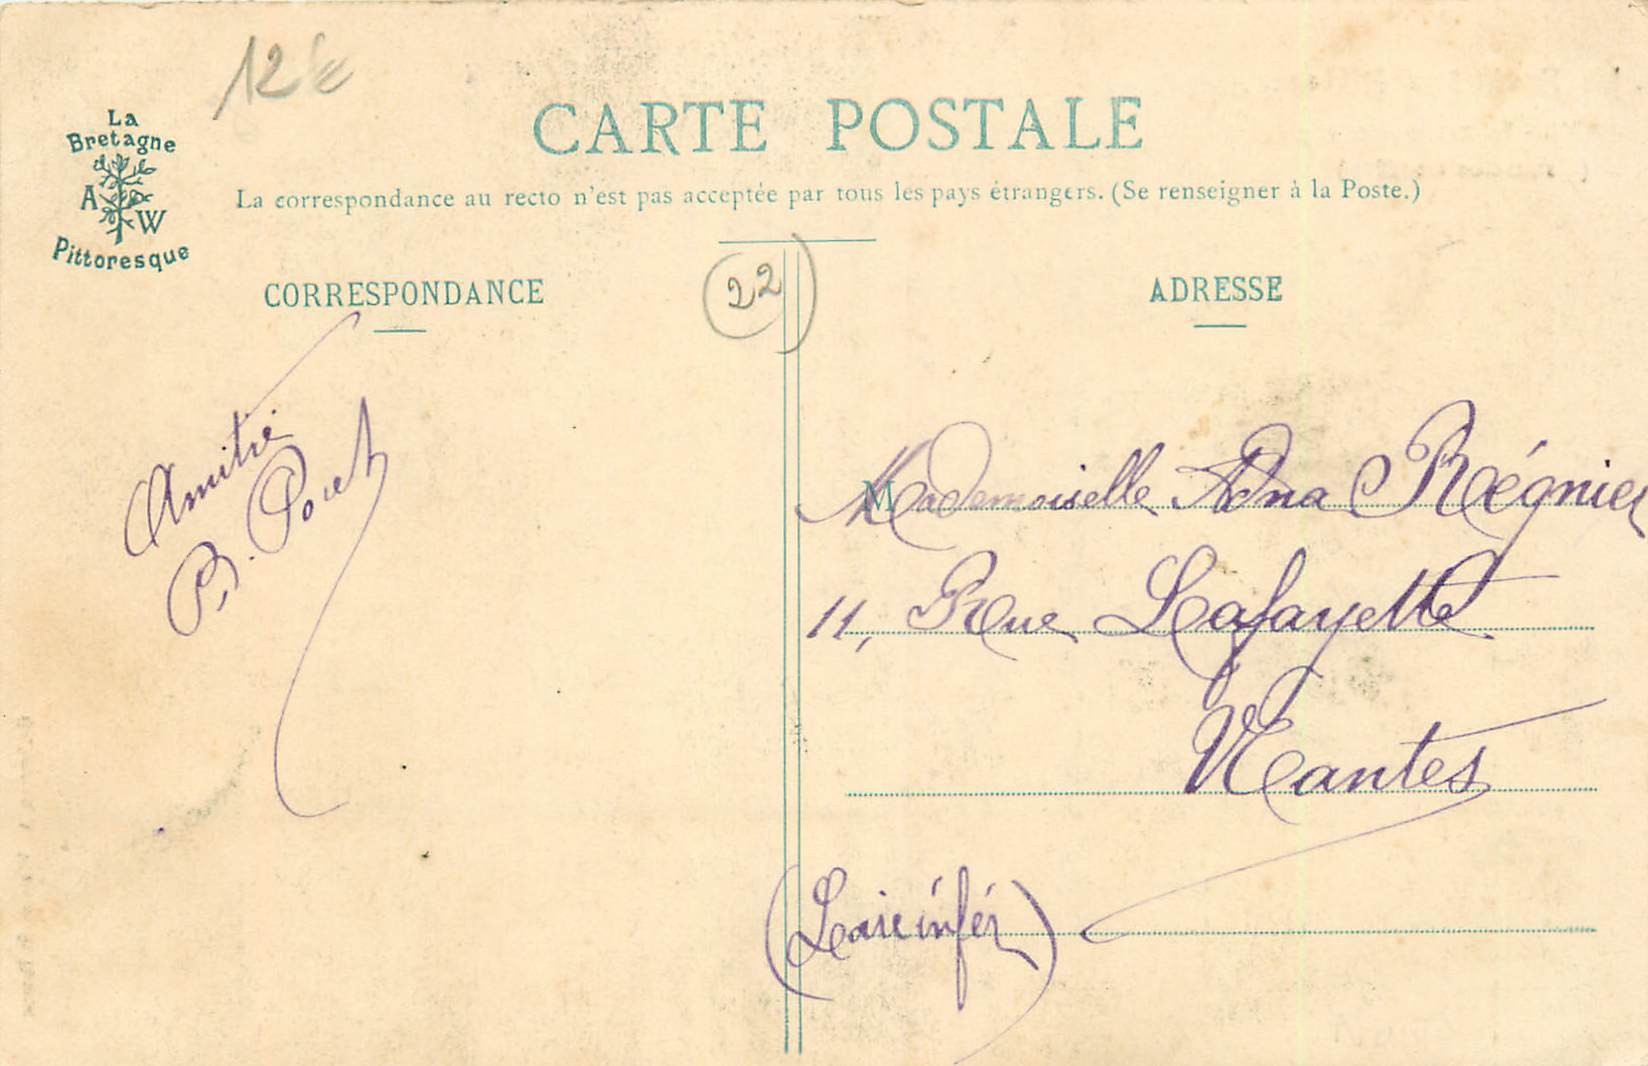 12€
La
Bretagne
A W
Pittoresque
CARTE POSTALE
La correspondance au recto n'est pas acceptée par tous les pays étrangers. (Se renseigner à la Poste.)
22
CORRESPONDANCE
Amitié
ADRESSE
Mademoiselle Régnier
11, Rue Lafayette
Nantes
(Loire infér)